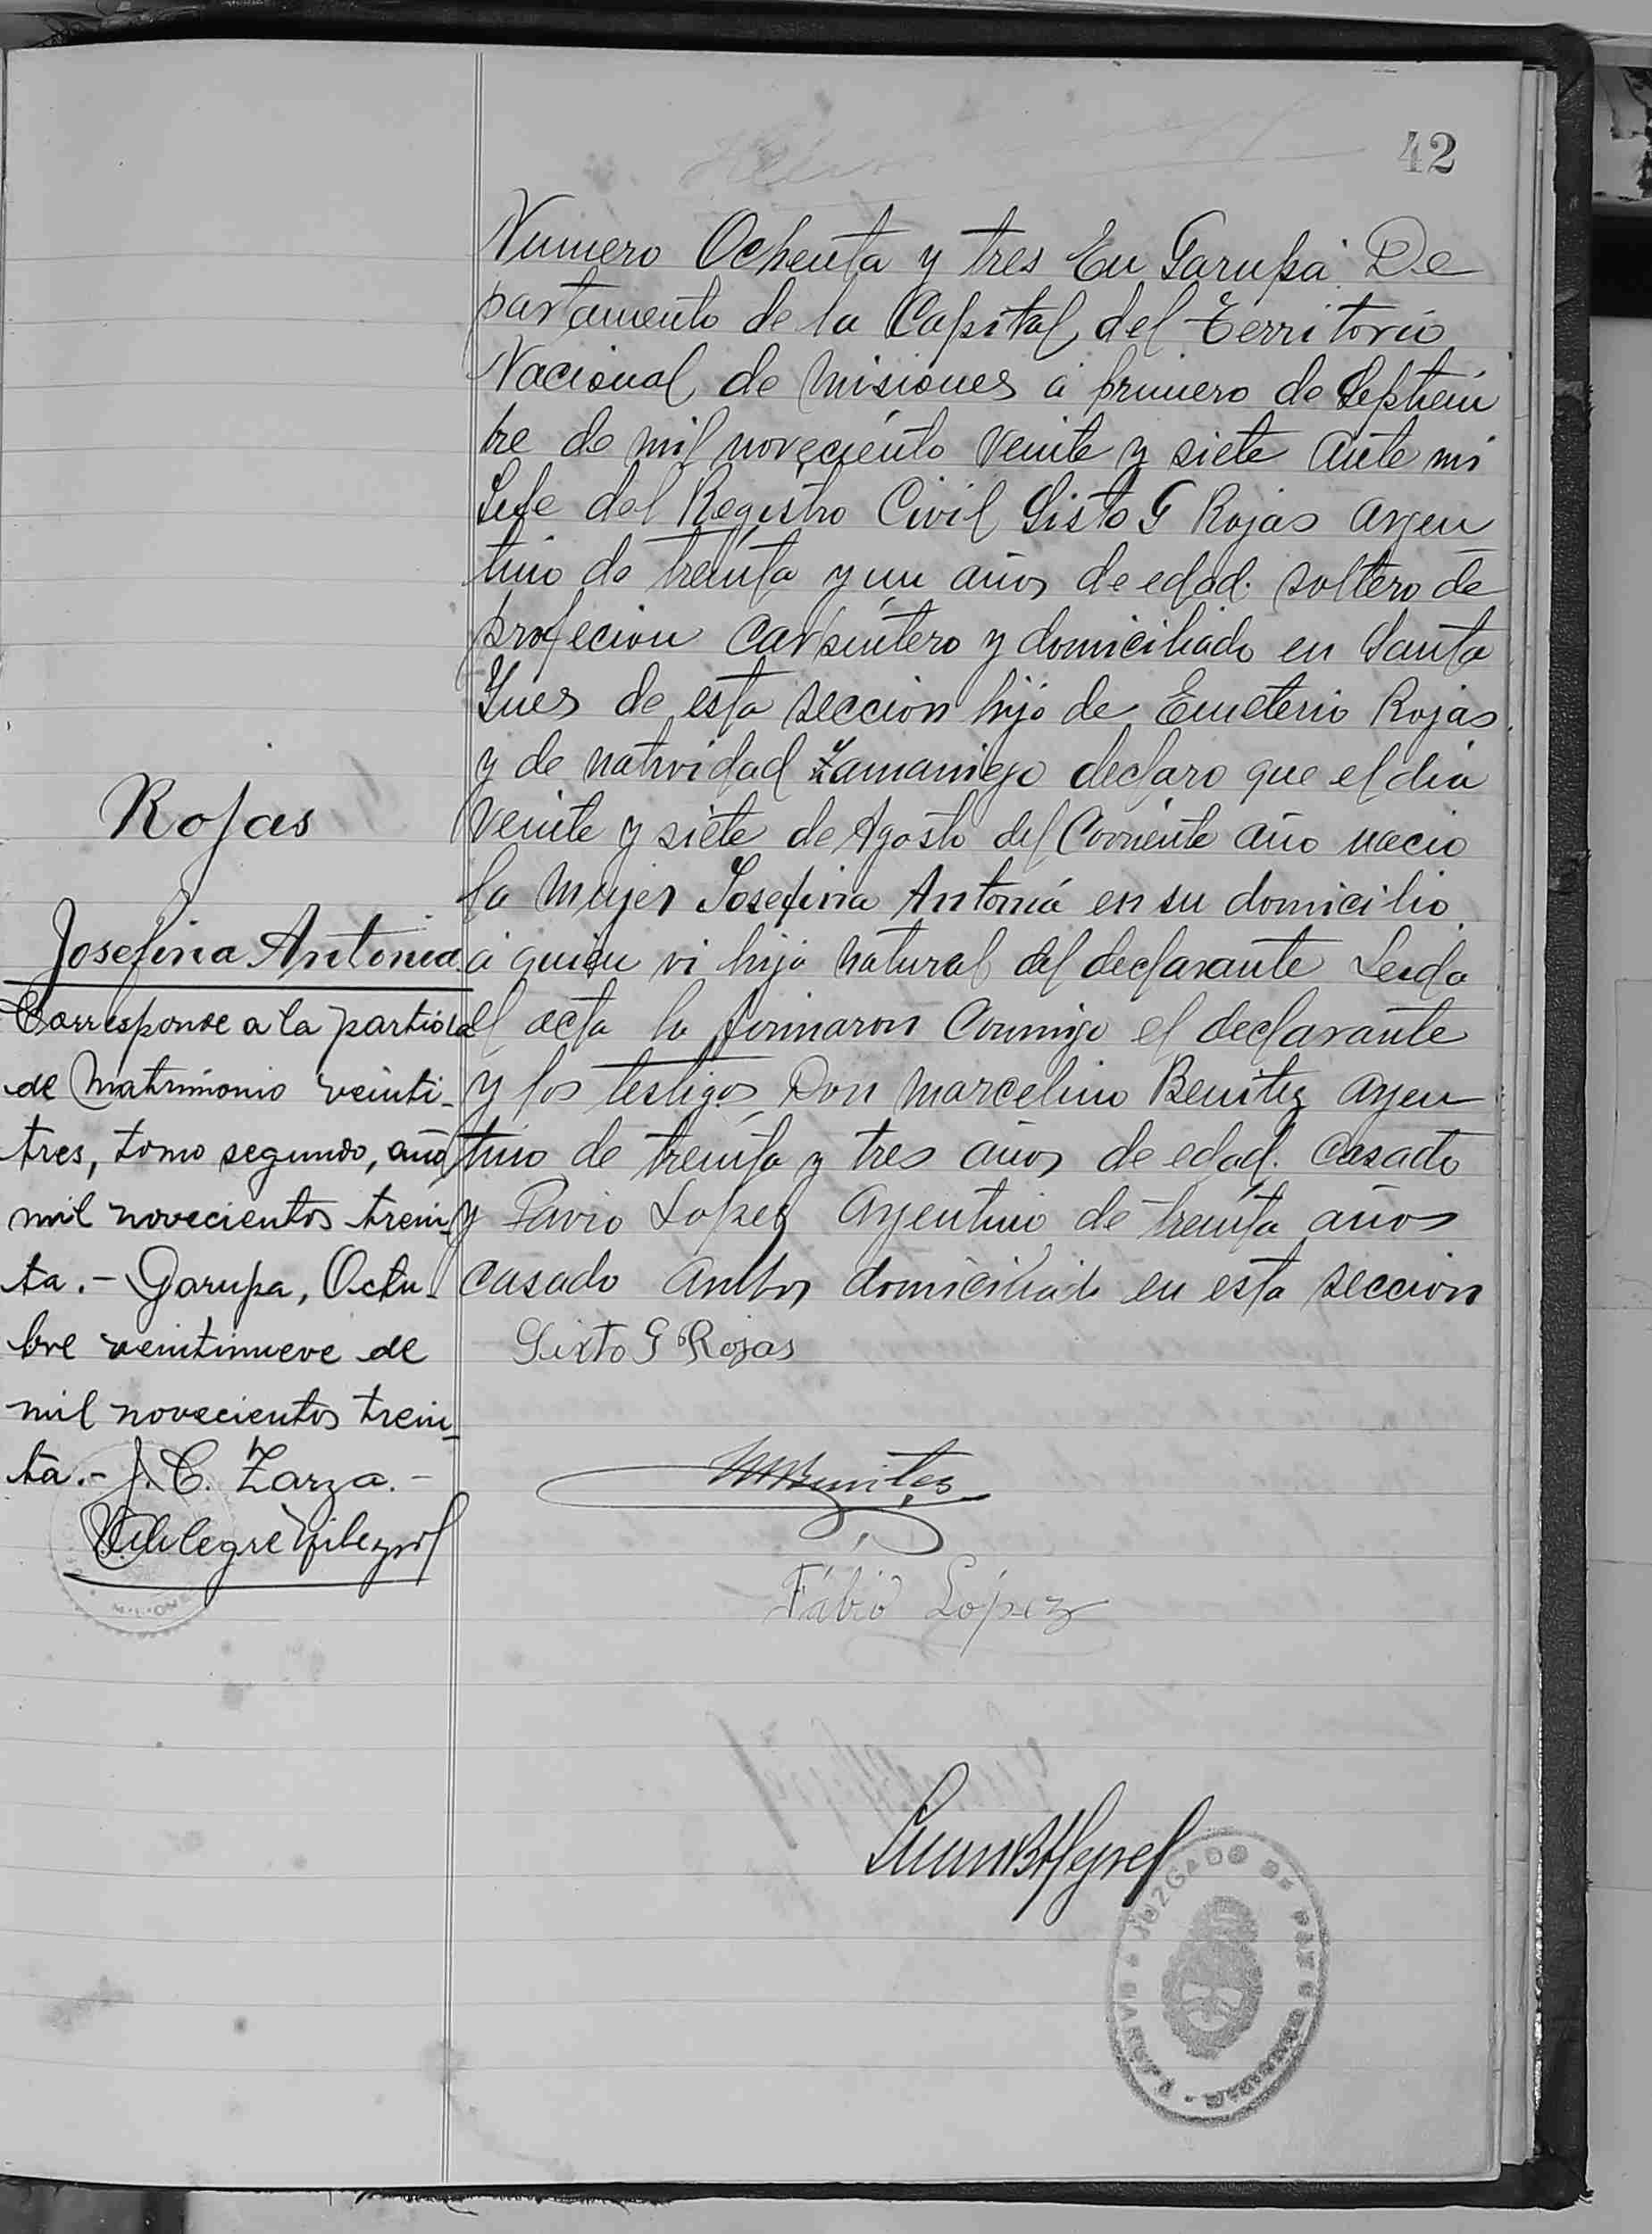 42
Numero Ochenta y tres En Garupa De
partamento de la Capital del Territorio
Nacional de Misiones á primero de Septiem
bre de mil noveciento Veinte y siete Ante mi
Jefe del Registro Civil Sisto G Rojas Argen
tino de treinta y un años de edad. soltero de
profecion Carpintero y domiciliado en Santa
Ynes de esta seccion hijo de Emeterio Rojas
y de natividad Zamaniego declaro que el dia
Veinte y siete de Agosto del Corriente año nacio
la Mujer Josefina Antonia en su domicilio
á quien vi hija natural del declarante Leida
el acta la firmaron Conmigo el declarante
y los testigos Don Marcelino Benitez Argen
tino de treinta y tres años de edad. Casado
y Favio Lopez Argentino de treinta años
casado Ambos domiciliado en esta seccion
Sixto G Rojas
MBenitez
Fábio López
JUZGADO DE PAZ
Rojas
Josefina Antonia
Corresponde a la partida
de Matrimonio veinti-
tres, tomo segundo, año
mil novecientos trein-
ta.- Garupa, Octu-
bre veintinueve de
mil novecientos trein-
ta.- J. C. Zarza.-